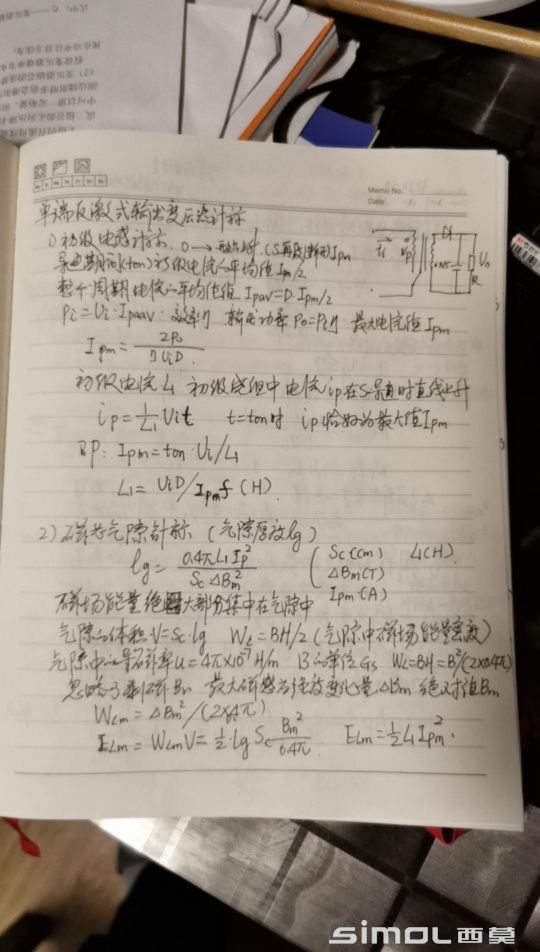 Memo No.
Date
单端反激式输出变压器计标
1) 初级电感计标. 0 → 开始上升. (S再反断开) Ipm
导通期间(ton)初级电流平均值 Ipm/2
整个周期电流的平均值 Ipav=D·Ipm/2
Pi=Ui·Ipav · 效率η 输出功率 Po=Piη 最大电流值 Ipm
Ipm = 2Po / ηUiD
初级电流 L1 初级绕组中电流 ip 在S导通时直线上升
ip = 1/L1 Uit t=ton时 ip恰好为最大值 Ipm
即: Ipm = ton·Ui/L1
L1 = UiD/Ipmf (H).
2) 磁芯气隙计标 (气隙厚度 lg)
lg = 0.4πL1Ip² / ScΔBm² ( Sc(cm) L1(H)
ΔBm(T)
Ipm(A)
磁场能量绝大部分集中在气隙中
气隙的体积 V=Sc·lg WL=BH/2 (气隙中磁场能量密度)
气隙中的导磁率 u=4π×10⁻⁷H/m B的单位Gs WL=BH=B²/(2×0.4π)
忽略了剩磁Bm 最大磁感应强度变化量ΔBm 绝对值Bm
WLm = ΔBm²/(2×.4π)
ELm = WLmV = ½·lg Sc Bm²/0.4π. ELm=½L1Ipm².
D1
Uo
R
SIMOL西莫